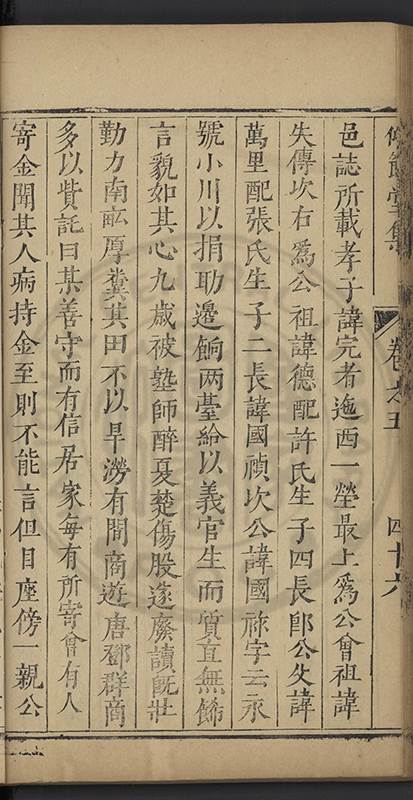 餙堂集 卷之五 四十六
邑誌所載孝子諱完者迤西一塋最上爲公曾祖諱
失傳次右爲公祖諱德配許氏生子四長卽公父諱
萬里配張氏生子二長諱國禎次公諱國祿字云永
號小川以捐助邊餉两臺給以義官生而質直無餙
言貌如其心九歳被塾師醉夏楚傷股遂廢讀旣壯
勤力南畆厚糞其田不以旱澇有間商遊唐鄧群商
多以貲託曰某善守而有信居家每有所寄會有人
寄金聞其人病持金至則不能言但目座傍一親公